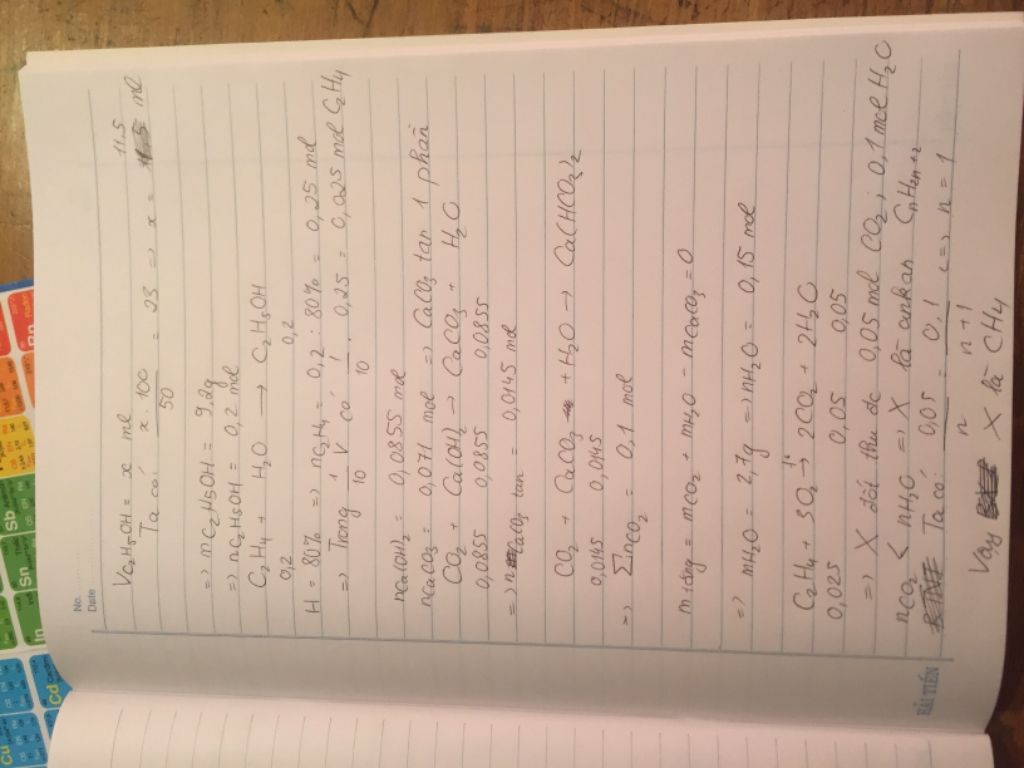 No.
Date
VC₂H₅OH = x ml
Ta có: x . 100 / 50 = 23 => x = 11.5 ml
=> mC₂H₅OH = 9,2g
=> nC₂H₅OH = 0,2 mol
C₂H₄ + H₂O → C₂H₅OH
0,2 0,2
H = 80% => nC₂H₄ = 0,2 : 80% = 0,25 mol
=> Trong 1/10 V có 1/10 . 0,25 = 0,025 mol C₂H₄
nCa(OH)₂ = 0,0855 mol
nCaCO₃ = 0,071 mol => CaCO₃ tan 1 phần
CO₂ + Ca(OH)₂ → CaCO₃ + H₂O
0,0855 0,0855 0,0855
=> nCaCO₃ tan = 0,0145 mol
CO₂ + CaCO₃ + H₂O → Ca(HCO₃)₂
0,0145 0,0145
=> ∑nCO₂ = 0,1 mol
m tăng = mCO₂ + mH₂O - mCaCO₃ = 0
=> mH₂O = 2,7g => nH₂O = 0,15 mol
C₂H₄ + 3O₂ →t° 2CO₂ + 2H₂O
0,025 0,05 0,05
=> X đốt thu đc 0,05 mol CO₂ ; 0,1 mol H₂O
nCO₂ < nH₂O => X là ankan CnH2n+2
Ta có: 0,05 / n = 0,1 / n+1 <=> n = 1
Vậy X là CH₄
HẢI TIẾN
Cu
Cd
In
Sn
Sb
Rn